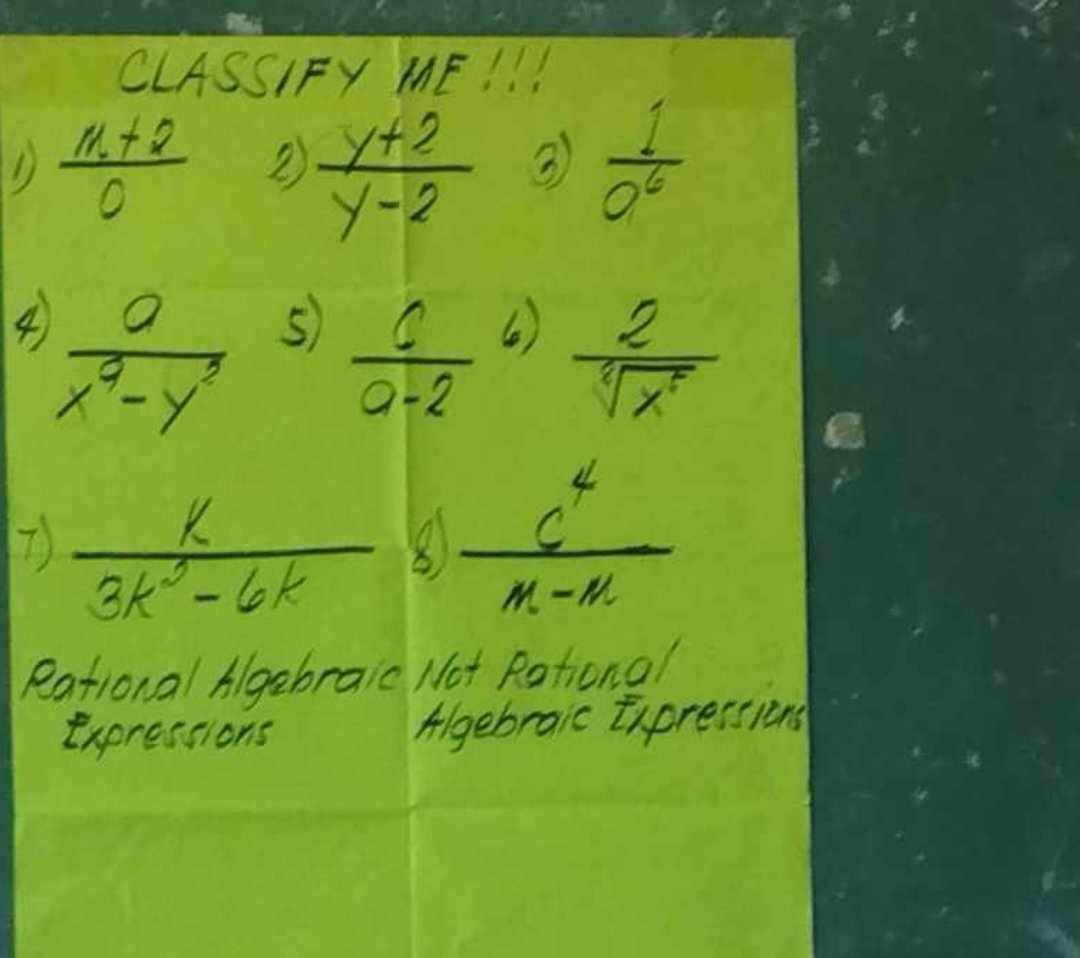 CLASSIFY ME!!!
1) m+2/0 2) y+2/y-2 3) 1/a⁶
4) a/x⁹-y² 5) c/a-2 6) 2/√x
7) k/3k³-6k 8) c⁴/m-m
Rational Algebraic Expressions
Not Rational Algebraic Expressions